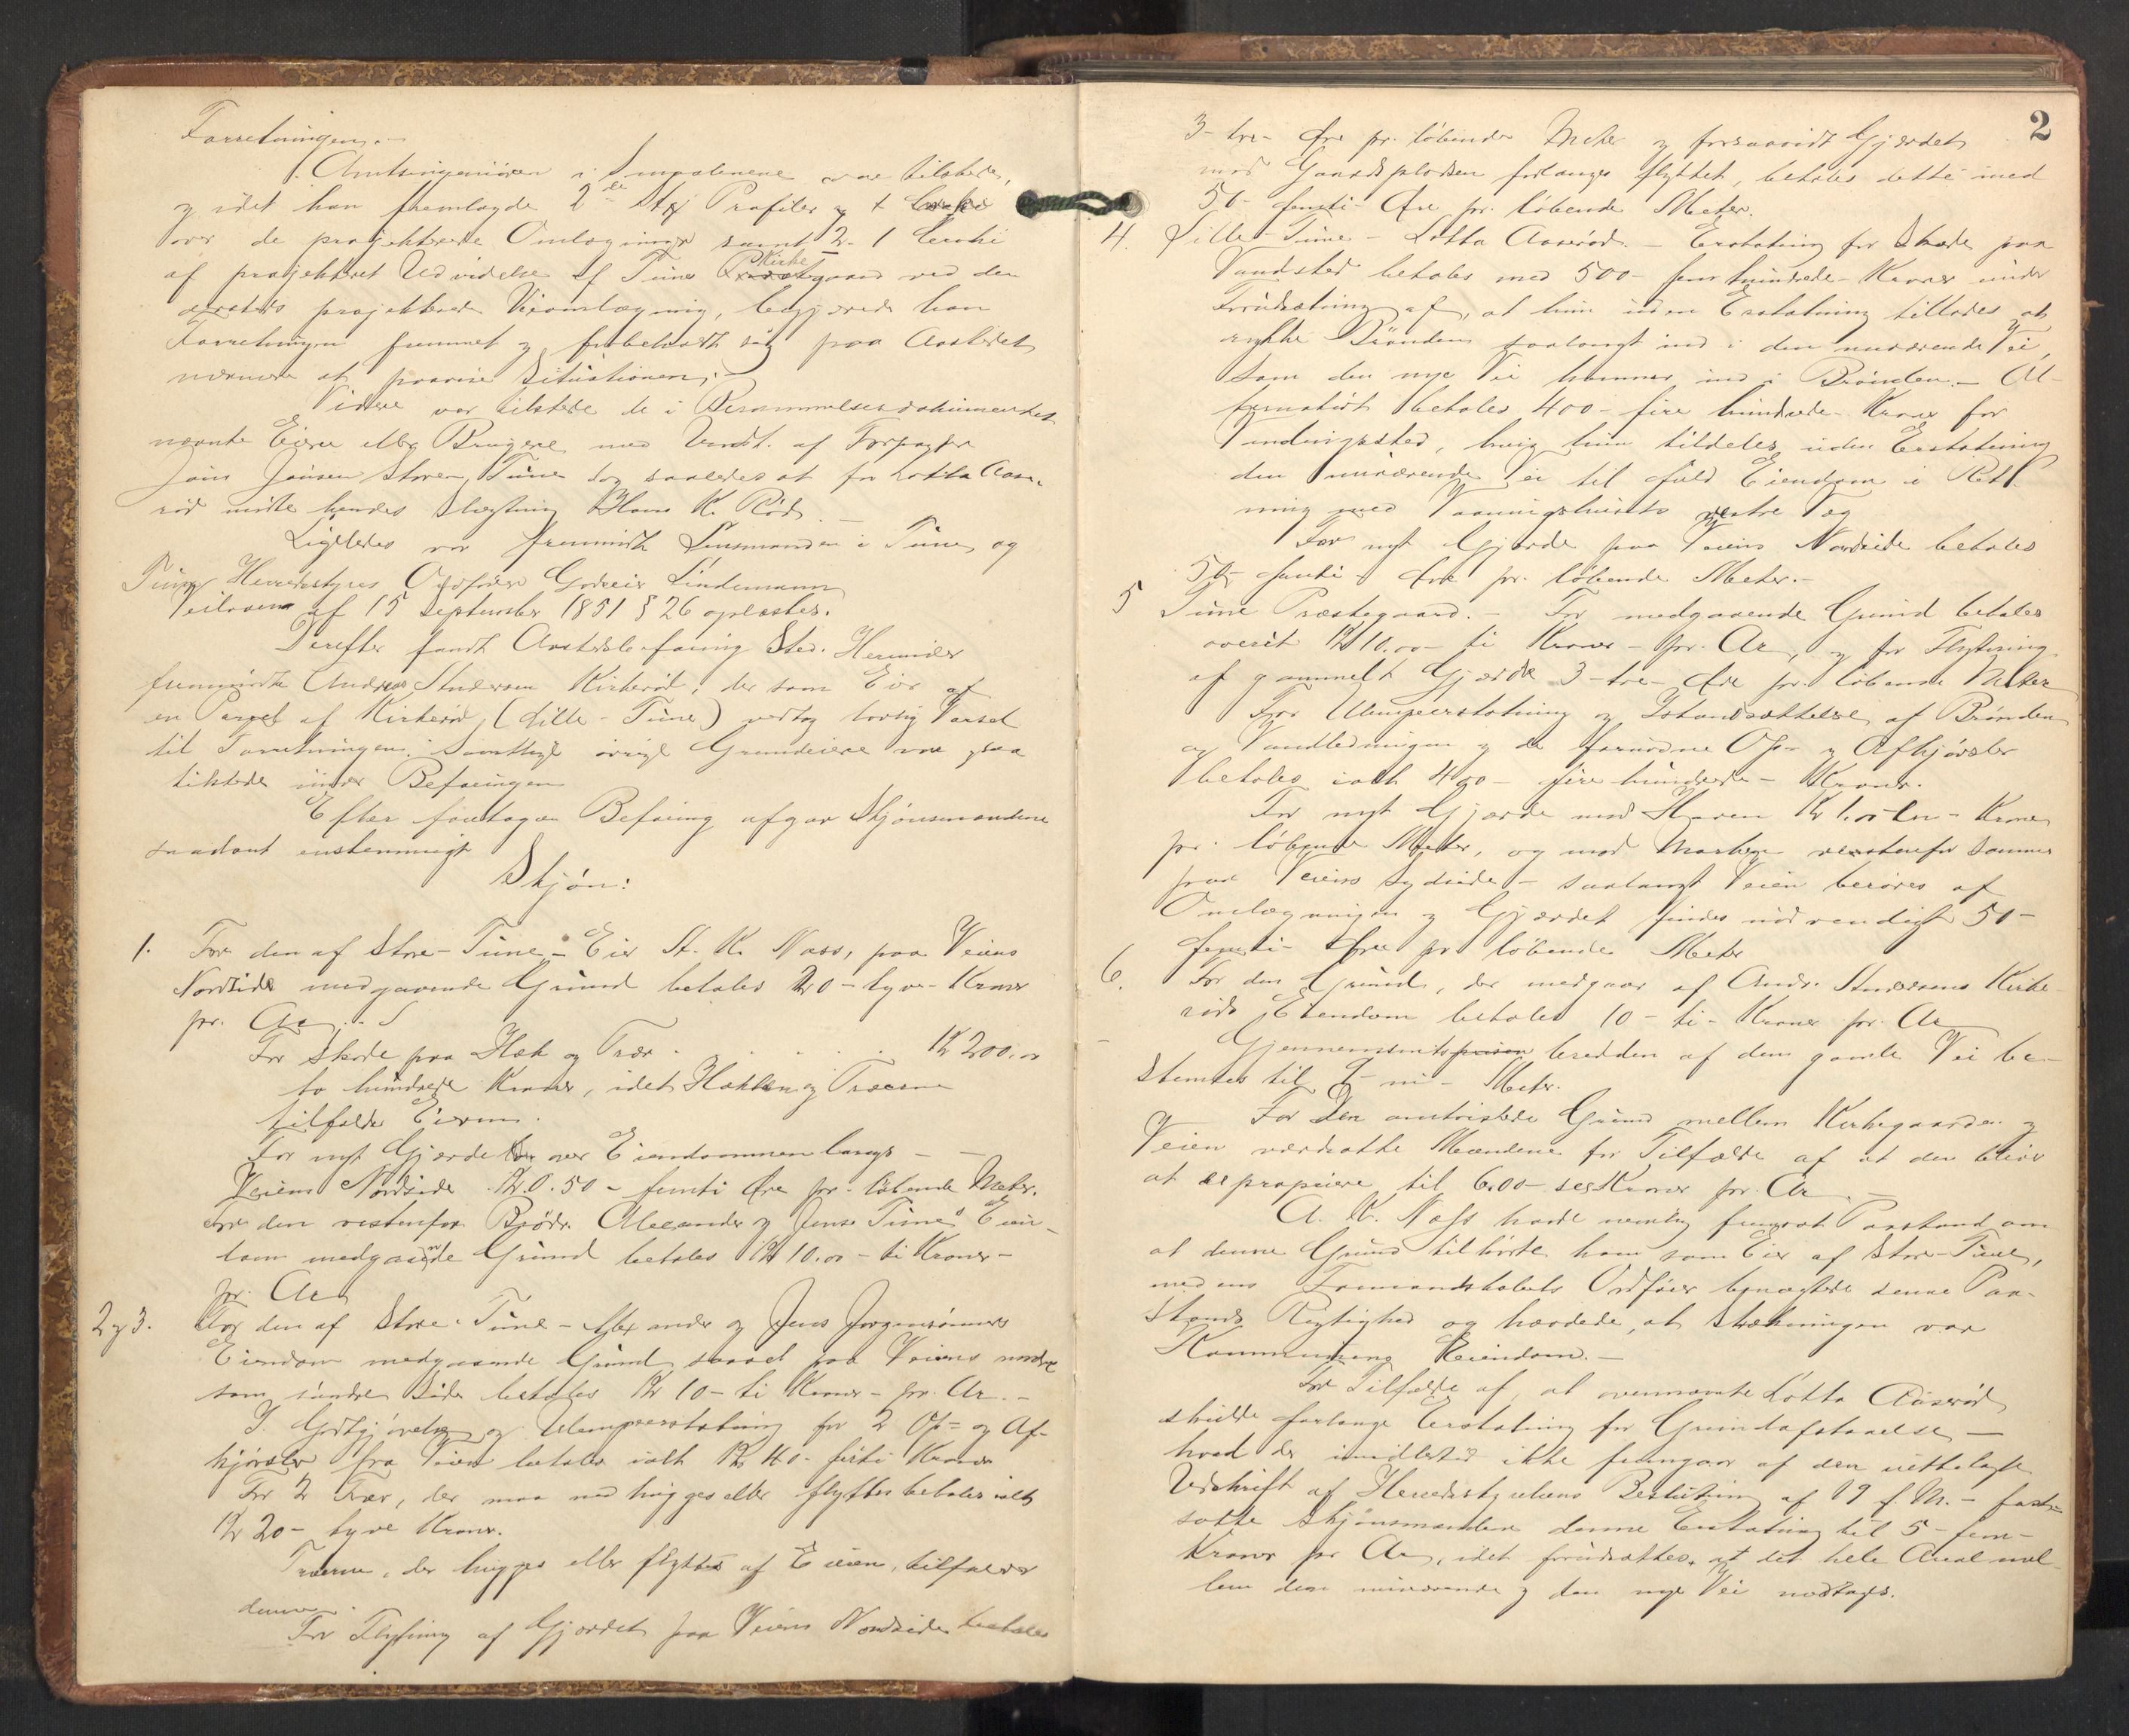 Forretningen.-
Amtsingeniøren i Smaalenene var tilstede,
og idet han fremlagde 2de Stk Profiler og 1
over de projekterede Omlægninger samt 2- 1
af projekteret Udvidelse af Tune Kirkegaard ved den
projekterede Veiomlægning, begjærede han
Forretningen fremmet og forbeholdt sig paa Aastedet
nærmere at paavise Situationen.
Videre var tilstede de i Berammelsesdokumentet
nævnte Eiere eller Brugere med Undt. af Forpagter
Jens Jensen Store Tune dog saaledes at for Lotta Aase-
rød mødte hendes Slægtning Hans K. Rød.-
Ligeledes var fremmødt Lensmanden i Tune og
Tune Herredstyres Ordfører Godseier Lindemann
Veiloven af 15 September 1851 § 26 oplæstes.
Derefter fandt Aastedsbefaring Sted. Herunder
fremmødte Andreas Andersen Kirkerød, der som Eier af
en Parcel af Kirkerød, (Lille-Tune) vedtog lovlig Varsel
til Forretningen. Samtlige øvrige Grundeiere var
tilstede under Befaringen
Efter foretagen Befaring afgav Skjønsmændene
saadant enstemmigt
Skjøn:
1. For den af Store-Tune - Eier A. K. Næss, paa Veiens
Nordside medgaaende Grund betales 20-tyve-Kroner
pr. Ar.-
For Skade paa Hæk og Trær . . . . . Kr 200.00
to hundrede Kroner, idet Hækken og Træerne
tilfalder Eieren.
For nyt Gjærde over Eiendommen langs -
Veiens Nordside Kr. 0.50 - femti Øre pr. løbende Meter.
For den vestenfor Brødr. Alexander og Jens Tunes Eien-
dom medgaaende Grund betales Kr 10.00 - ti Kroner -
pr. Ar
2 og 3. For den af Store-Tune - Alexander og Jens Jørgensønners
Eiendom medgaaende Grund saavel paa Veiens nordre
som søndre Side betales Kr 10-ti Kroner- pr. Ar.-
I Godtgjørelse og Ulempeerstatning for 2 Op- og Af-
kjørsler fra Veien betales ialt Kr 40- førti Kroner
For 2 Trær, der maa nedhugges eller flyttes betales ialt
Kr 20- tyve Kroner.
Træerne, der hugges eller flyttes af Eieren, tilfalder
denne.
For Flytning af Gjærdet paa Veiens Nordside betales
2
3-tre- Øre pr. løbende Meter og forsaavidt Gjærdet
mod Gaardspladsen forlanges flyttet, betales dette med
50- femti- Øre pr. løbende Meter.
4. Lille-Tune - Lotta Aaserød.- Erstatning for Skade paa
Vandsted betales med 500- fem hundrede- Kroner under
Forudsætning af, at hun uden Erstatning tillades at
rykke Brønden saalangt ind i den nuværende Vei,
som den nye Vei kommer ind i Brønden.- Al-
ternativt betales 400- fire hundrede- Kroner for
Vandingssted, hvis hun tildeles uden Erstatning
den nuværende Vei til fuld Eiendom i Ret-
ning med Vaaningshusets vestre Væg
For nyt Gjærde paa Veiens Nordside betales
50- femti- Øre pr. løbende Meter.-
5 Tune Præstegaard.- For medgaaende Grund betales
overalt Kr 10.00- ti Kroner - pr. Ar, og for Flytning
af gammelt Gjærde 3-tre- Øre pr. løbende Meter
For Ulempeerstatning og Istandsættelse af Brønden
og Vandledningen og de fornødne Op- og Afkjørsler
betales ialt 400- fire hundrede- Kroner.
For nyt Gjærde mod Haven Kr 1.00- en- Krone
pr. løbende Meter, og mod Marken vestenfor samme
paa Veiens Sydside - saalangt Veien berøres af
Omlægningen og Gjærdet findes nødvendigt 50-
femti- Øre pr løbende Meter
6. For den Grund, der medgaar af Andr. Andersens Kirke-
røds Eiendom betales 10- ti- Kroner pr. Ar
Gjennemsnitsbredden af den gamle Vei be-
stemtes til 9- ni- Meter.
For den omtvistede Grund mellem Kirkegaarden og
Veien værdsatte Mændene for Tilfælde af at den bliver
at expropriere til 6.00- sex Kroner pr. Ar.-
A. K. Næss havde nemlig fremsat Paastand om
at denne Grund tilhørte ham som Eier af Store-Tune,
medens Formandskabets Ordfører benægtede denne Paa-
stands Rigtighed og hævdede, at Strækningen var
Kommunens Eiendom.-
For Tilfælde af, at ovennævnte Lotta Aaserød
skulde forlange Erstatning for Grundafstaaelse -
hvad der imidlertid ikke fremgaar af den
Udskrift af Herredsstyrelsens Beslutning af 19 f. M.- fast-
satte Skjønsmændene denne Erstatning til 5- fem-
Kroner pr Ar, idet forudsættes, at det hele Areal mel-
lem den nuværende og den nye Vei medtages.